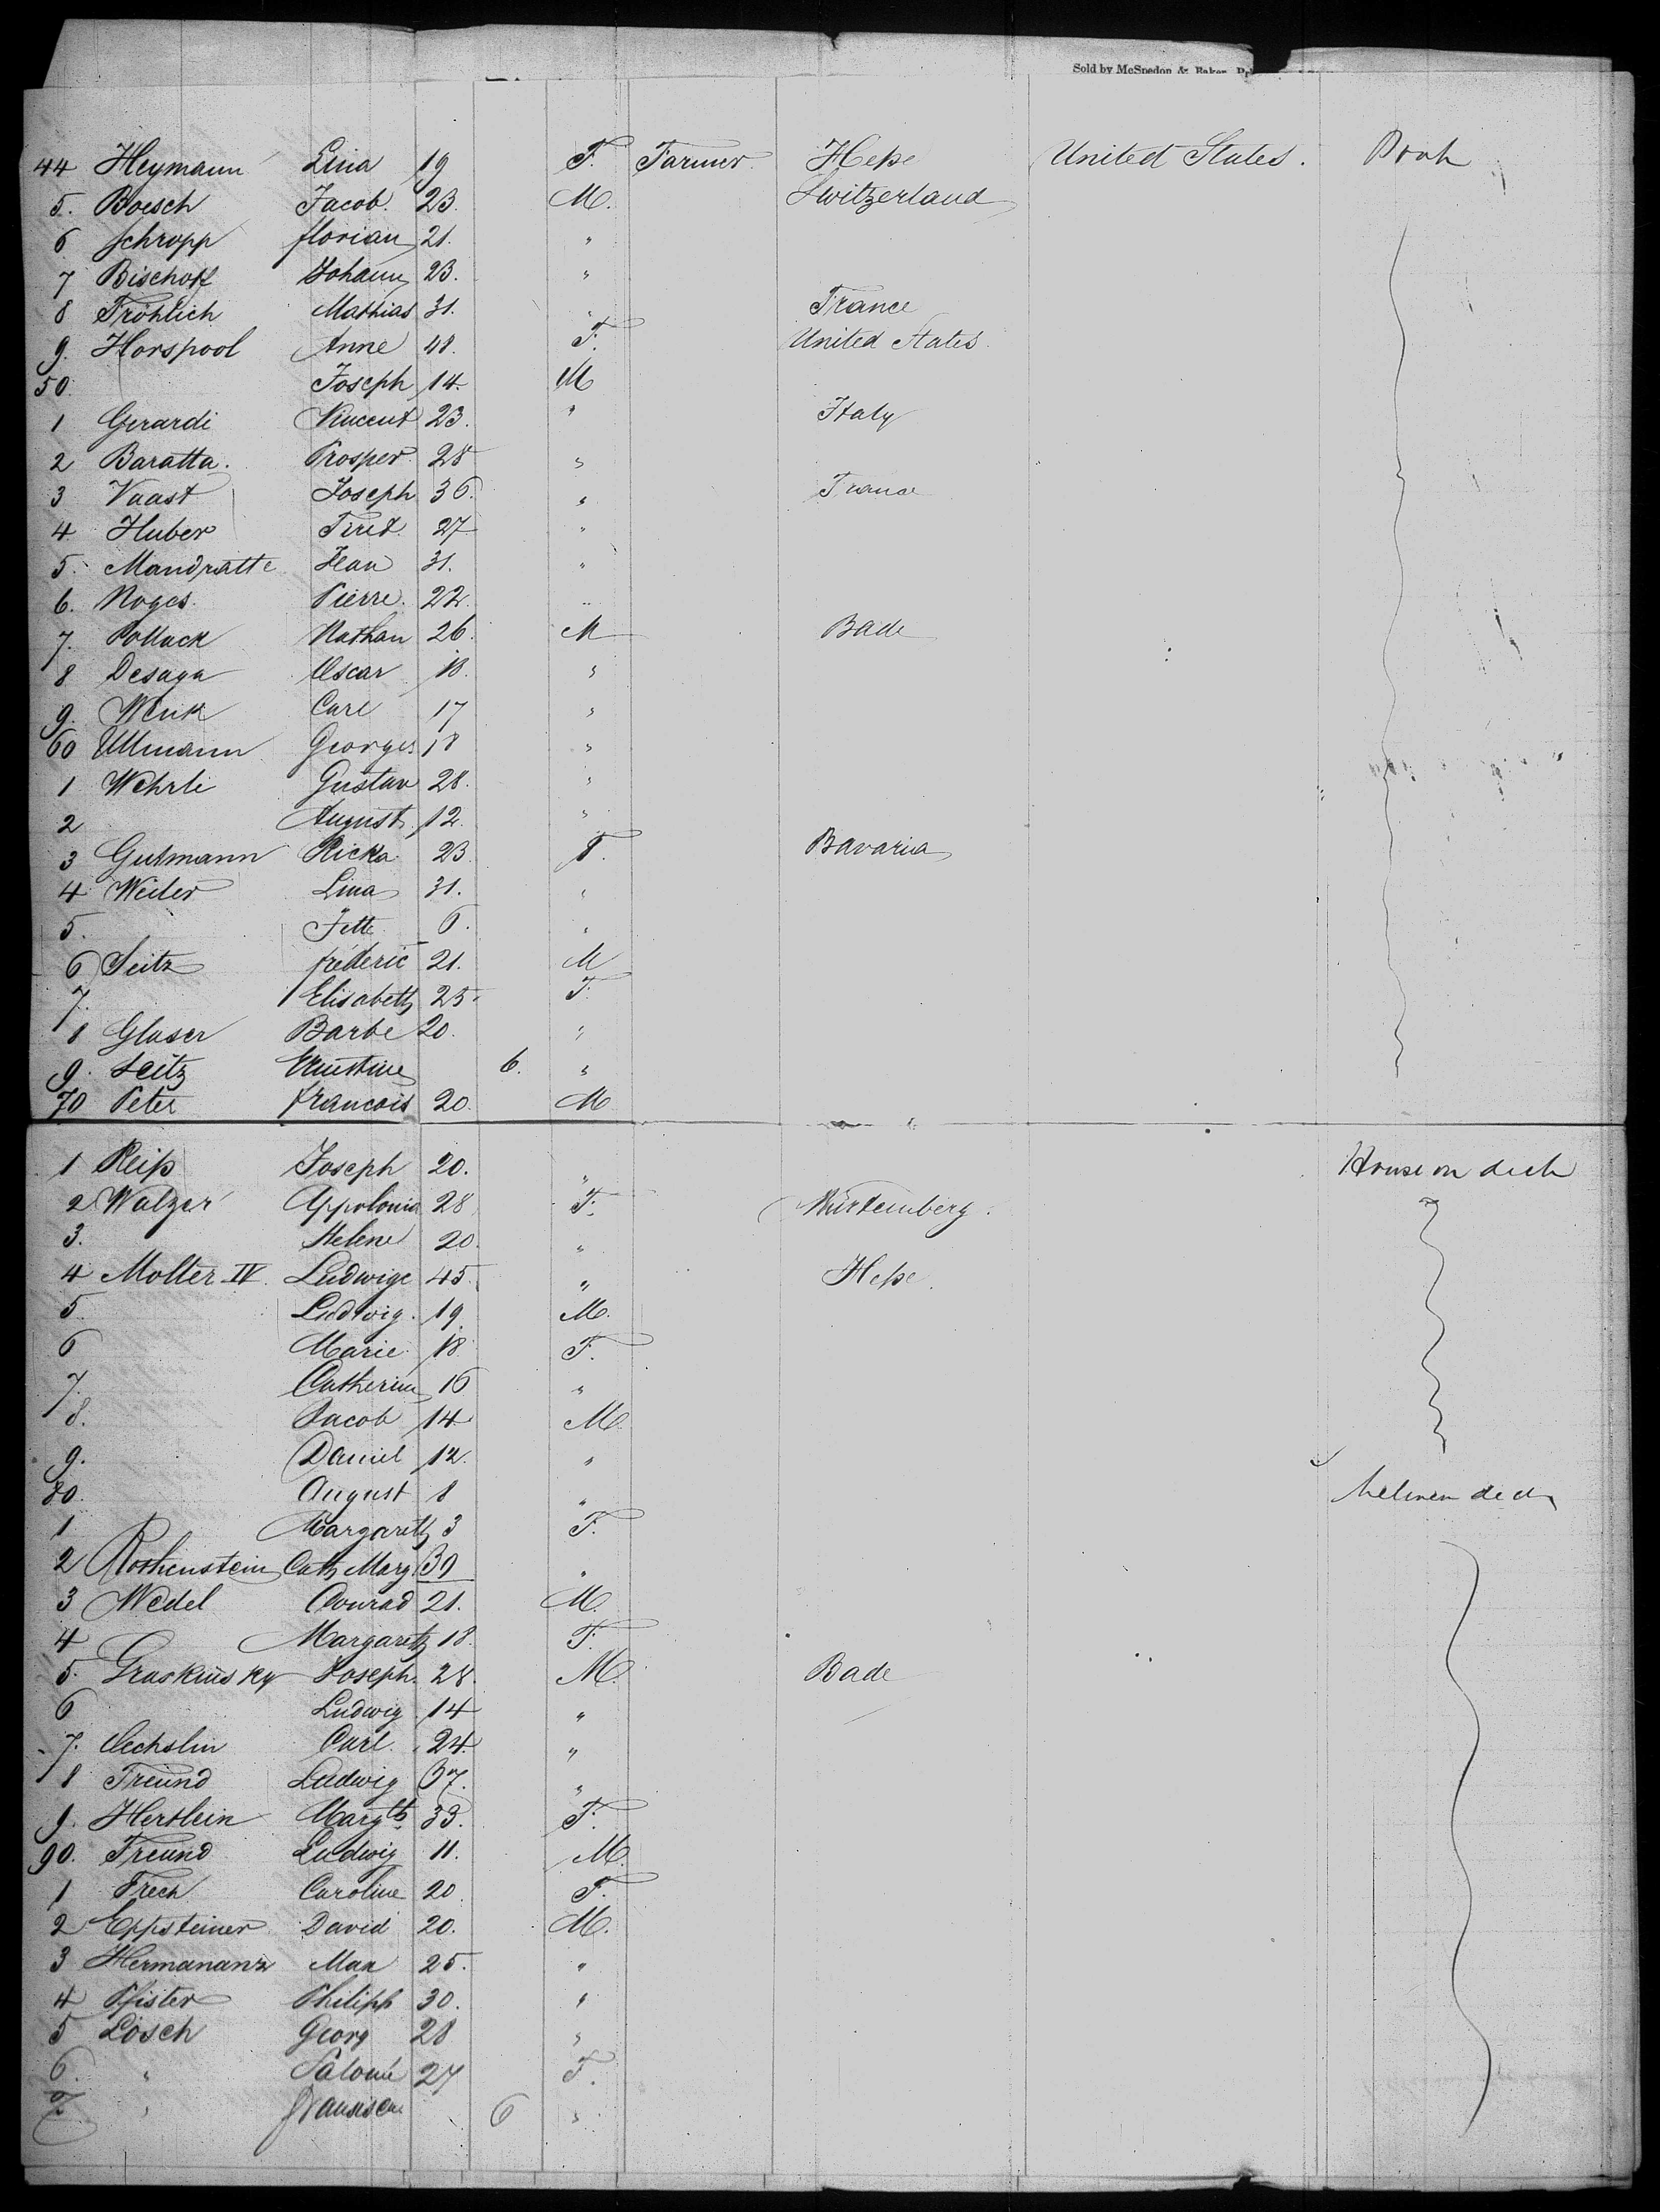 Sold by McSpedon & Baker
44 Heymann Lina 19 F. Farmer Heße United States. Poop
5. Boesch Jacob. 23. M. Switzerland
6 Schropp florian 21. "
7 Bischoff Johann 23. "
8 Fröhlich Mathias 31. " France
9. Horspool Anne 48. F. United States.
50. Joseph 14. M
1 Gerardi Vincent 23. " Italy
2 Baratta. Prosper 28 "
3 Vaast Joseph 36. " France
4 Huber 27 "
5. Mandratte Jean 31. "
6. Noges Pierre. 22. "
7. Pollack Nathan 26. M Bade
8 Desaga Oscar 18. "
9. Wenk Carl 17 "
60 Ullmann Georges 18 "
1 Wehrle Gustav 28. "
2 August. 12. "
3 Gutmann Ricka. 23 F. Bavaria
4 Weiler Lina 31. "
5. Jette 6. "
6 Seitz frederic 21. M
7. Elisabeth 25. F.
8 Glaser Barbe 20. "
9. Seitz Ernestine 6. "
70 Peter francois 20. M
1 Reiß Joseph 20. " House on deck
2 Walzer Appolonia 28 F. Würtemberg.
3. Helene 20. "
4 Molter IV. Ludwige 45. " Heße.
5 Ludwig. 19. M.
6 Marie 18 F.
7. Catherine 16 "
8. Jacob 14 M
9. Daniel 12. "
80. August 8 " between deck
1 Margareth 3 F.
2 Rothenstein Cath Marg 39 "
3 Wedel Conrad 21. M.
4 Margareth 18. F.
5. Joseph. 28. M. Bade
6 Ludwig 14 "
7. Oechslin Carl. 24. "
8 Freund Ludwig 37. "
9. Hertlein Margth. 33. F.
90. Freund Ludwig 11. M.
1 Frech Caroline 20. F.
2 Eppsteiner David 20. M.
3 Hermananz Max 25. "
4 Pfister Philipp 30. "
5 Lösch Georg 28 "
6. " Salomé 27 F.
7. " 6 "